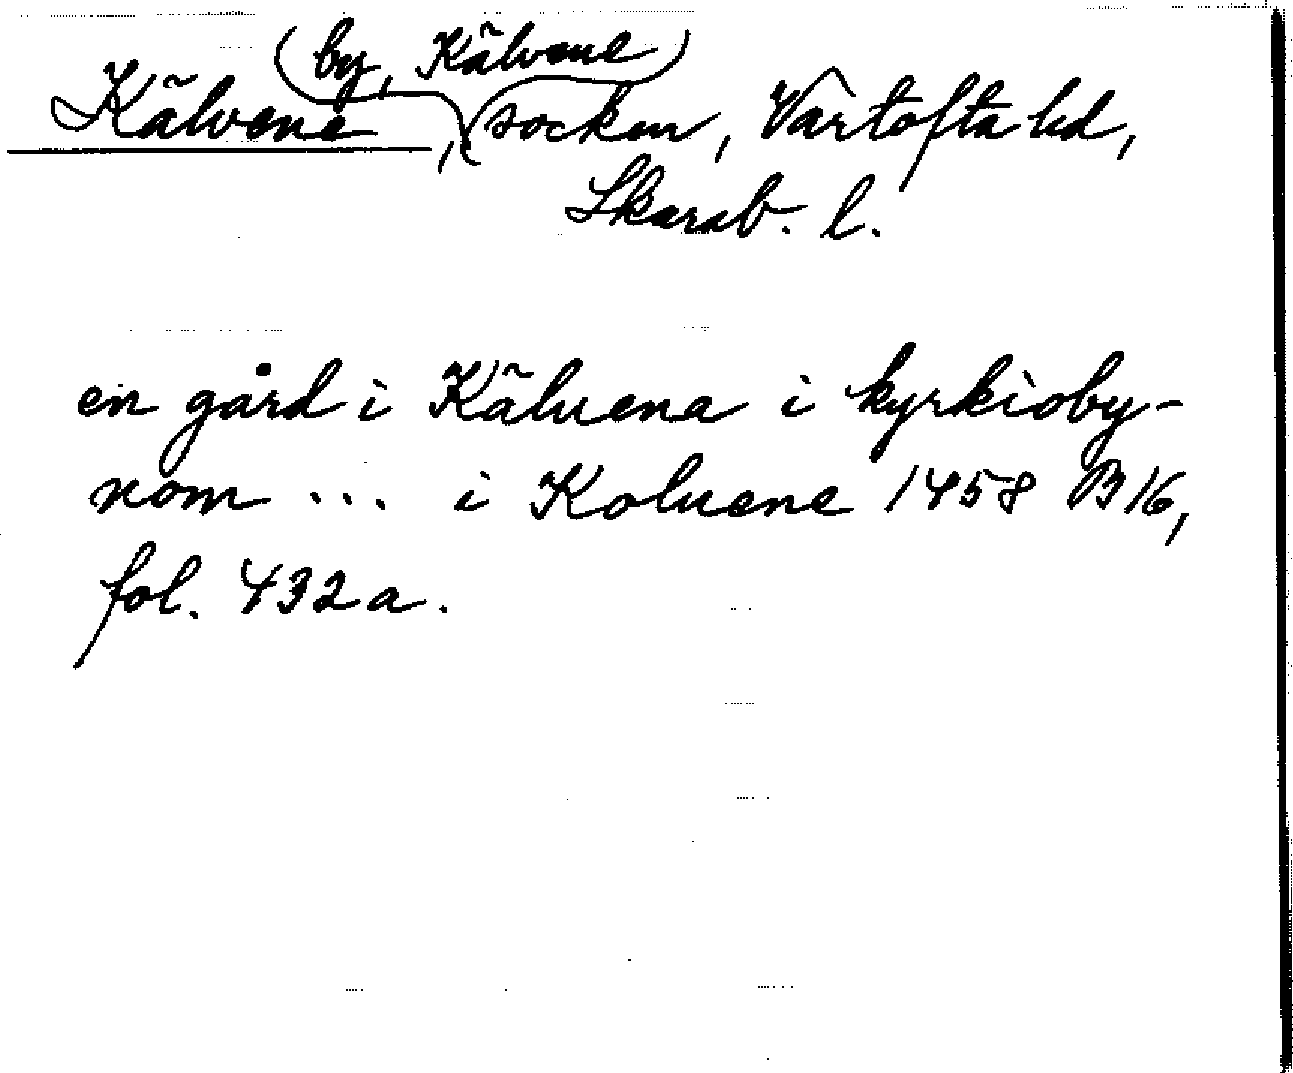 by, Kälvene
Kälvene, socken, Vartofta hd,
Skarab. l.
en gård i Käluena i kyrkioby-
nom ... i Koluene 1458 B 16,
fol. 432a.